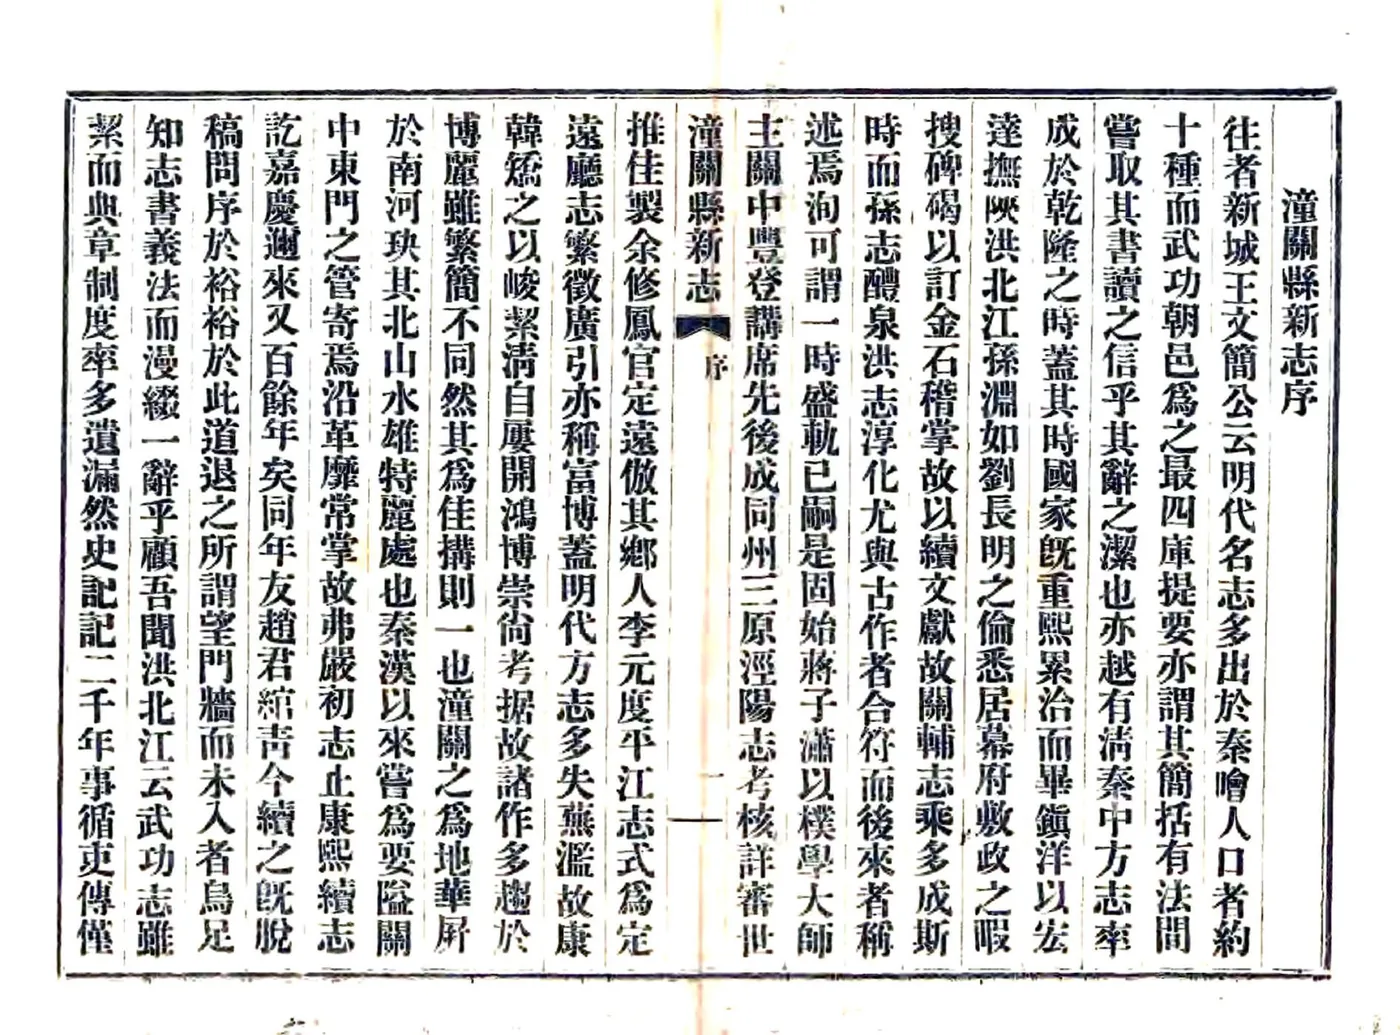 潼關縣新志序
往者新城王文簡公云明代名志多出於秦噲人口者約
十種而武功朝邑爲之最四庫提要亦謂其簡括有法間
嘗取其書讀之信乎其辭之潔也亦越有淸秦中方志率
成於乾隆之時蓋其時國家旣重熙累治而畢鎭洋以宏
達撫陝洪北江孫淵如劉長明之倫悉居幕府敷政之暇
搜碑碣以訂金石稽掌故以續文獻故關輔志乘多成斯
時而孫志醴泉洪志淳化尤與古作者合符而後來者稱
述焉洵可謂一時盛軌已嗣是固始蔣子瀟以樸學大師
主關中豐登講席先後成同州三原涇陽志考核詳審世
潼關縣新志 序 一
推佳製余修鳳官定遠倣其鄉人李元度平江志式爲定
遠廳志繁徵廣引亦稱富博蓋明代方志多失蕪濫故康
韓矯之以峻潔淸自屢開鴻博崇尙考据故諸作多趨於
博麗雖繁簡不同然其爲佳搆則一也潼關之爲地華屛
於南河玦其北山水雄特麗處也秦漢以來嘗爲要隘關
中東門之管寄焉沿革靡常掌故弗嚴初志止康熙續志
訖嘉慶邇來又百餘年矣同年友趙君綰靑今續之旣脫
稿問序於裕裕於此道退之所謂望門牆而未入者烏足
知志書義法而漫綴一辭乎顧吾聞洪北江云武功志雖
絜而典章制度率多遺漏然史記記二千年事循吏傳僅